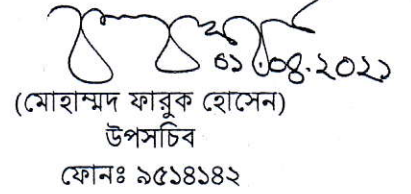 ০১.০৪.২০২১
(মোহাম্মদ ফারুক হোসেন)
উপসচিব
ফোনঃ ৯৫১৪১৪২